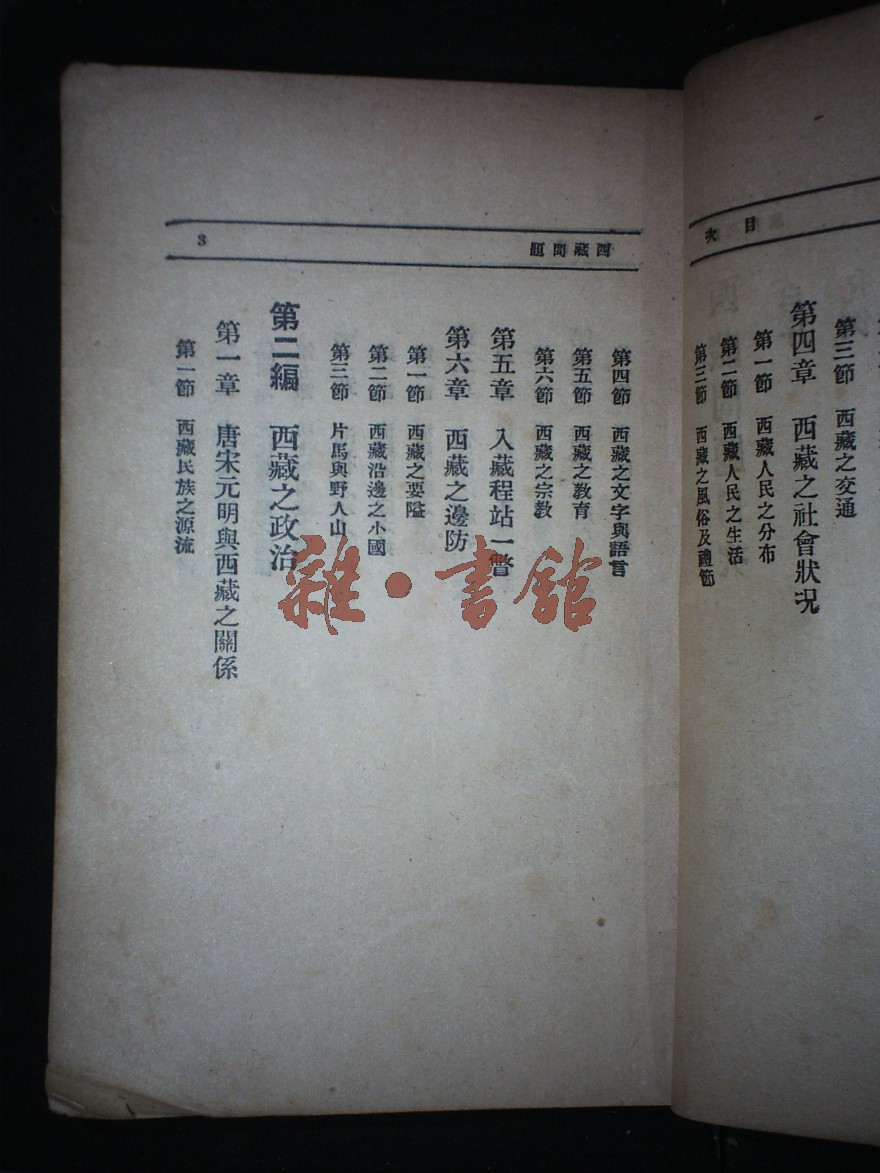 目次
第三節 西藏之交通
第四章 西藏之社會狀況
第一節 西藏人民之分布
第二節 西藏人民之生活
第三節 西藏之風俗及禮節
西藏問題
3
第四節 西藏之文字與語言
第五節 西藏之教育
第六節 西藏之宗教
第五章 入藏程站一瞥
第六章 西藏之邊防
第一節 西藏之要隘
第二節 西藏沿邊之小國
第三節 片馬與野人山
第二編 西藏之政治
第一章 唐宋元明與西藏之關係
第一節 西藏民族之源流
雜·書館